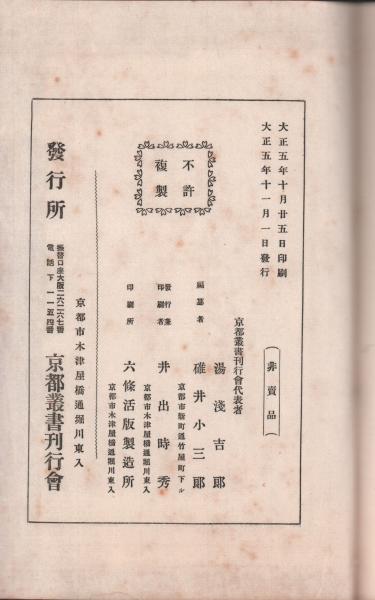 大正五年十月廿五日印刷
大正五年十一月一日發行
(非賣品)
不許
複製
京都叢書刊行會代表者
湯淺吉郎
編纂者
碓井小三郎
京都市新町通竹屋町下ル
發行兼
印刷者
井出時秀
京都市木津屋橋通堀川東入
印刷所
六條活版製造所
京都市木津屋橋通堀川東入
京都市木津屋橋通堀川東入
發行所
京都叢書刊行會
振替口座大阪二六二六七番
電話下一一五四番